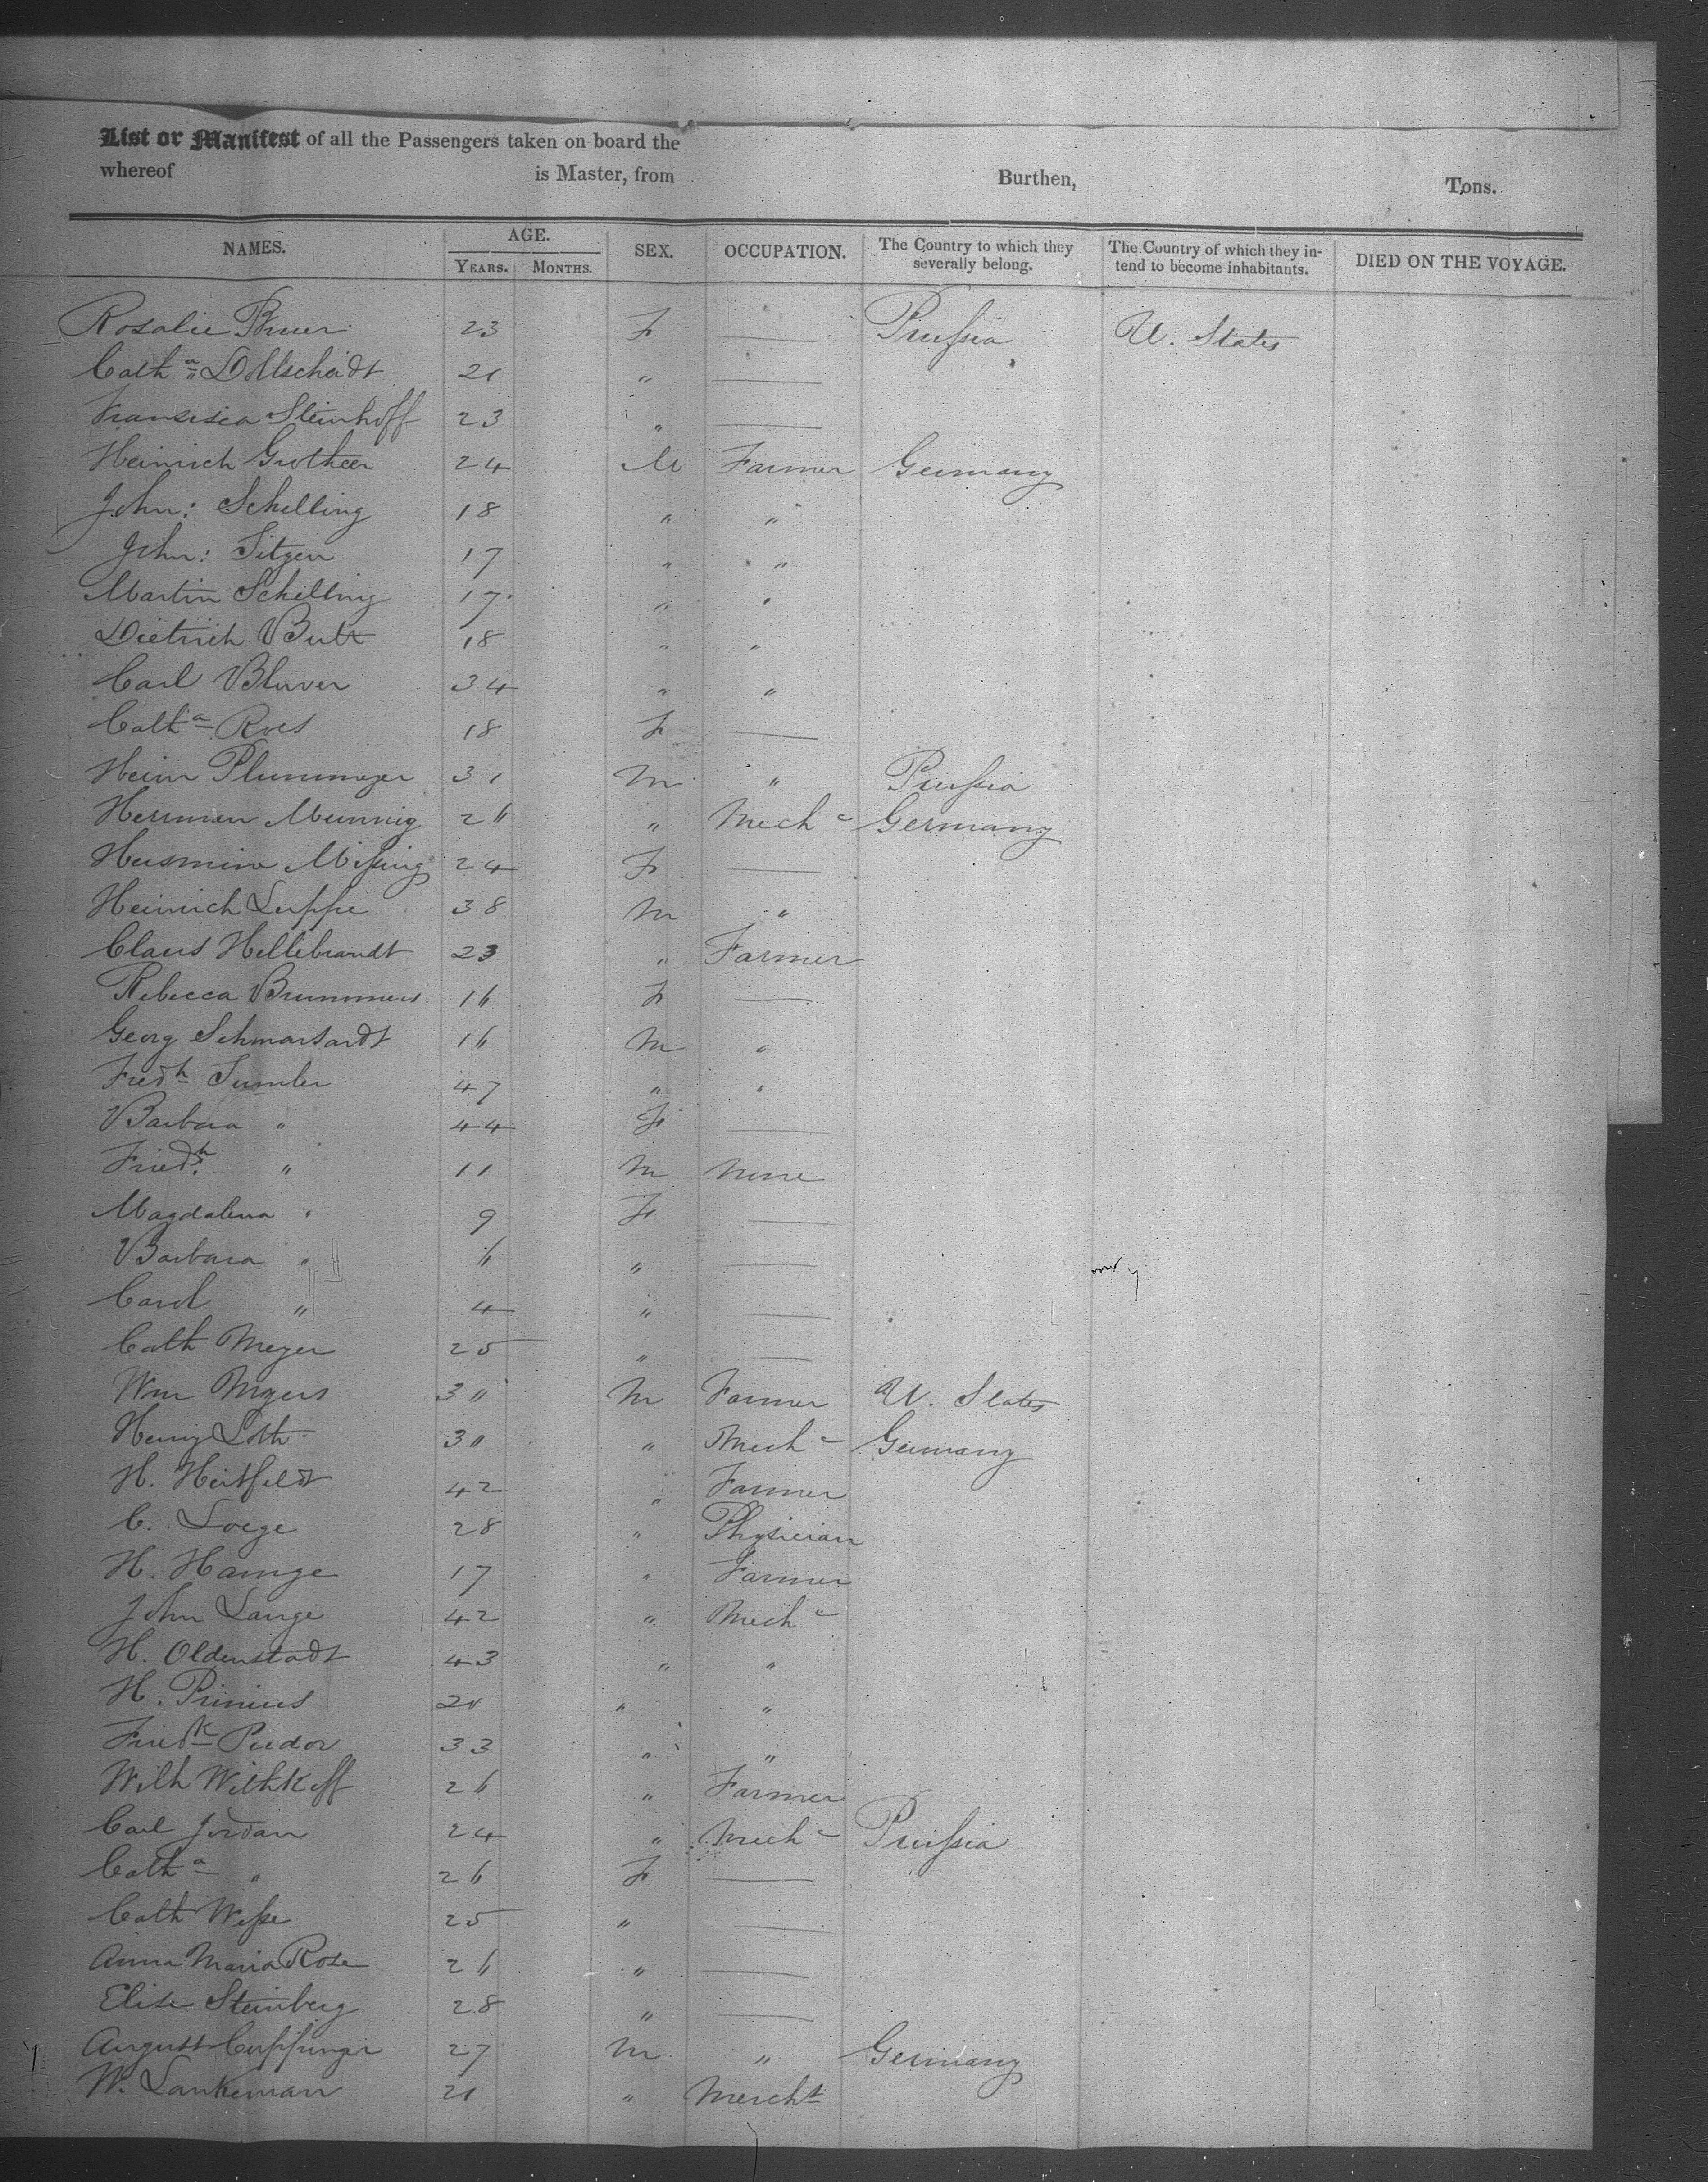 List or Manifest of all the Passengers taken on board the
whereof is Master, from Burthen, Tons.
NAMES. AGE. YEARS. MONTHS. SEX. OCCUPATION. The Country to which they severally belong. The Country of which they intend to become inhabitants. DIED ON THE VOYAGE.
Rosalie 23 F — Prussia U. States
Catha Dollscheidt 21 " —
Fransisca Steinhoff 23 " —
Heinrich Grotheer 24 M Farmer Germany
John: Schelling 18 " "
John: Titgen 17 " "
Martin Schelling 17 " "
Dietrich Butt 18 " "
Carl Bluver 34 " "
Catha Roes 18 F —
Heinr Plummeyer 31 M " Prussia
Herrman Munnig 26 " Mechc Germany
Hermine Missing 24 F —
Heinrich Luppe 38 M "
Claus Hellebrandt 23 " Farmer
Rebecca Brummers 16 F —
Georg Schmarsardt 16 M "
Fredh Sumler 47 " "
Barbara " 44 F —
Friedh " 11 M None
Magdalena " 9 F —
Barbara " 6 " —
Carol " 4 " —
Cath Meyer 25 " —
Wm Myers 30 M Farmer U. States
Henry Loth 30 " Mechc Germany
H. Heitfeldt 42 " Farmer
C. Loege 28 " Physician
H. Hamge 17 " Farmer
John Lange 42 " Mechc
H. Oldenstadt 43 " "
H. Primus 20 " "
Friedk Pudor 33 " "
Wilh Withkoff 26 " Farmer
Carl Jordan 24 " Mechc Prussia
Catha " 26 F —
Cath Wesse 25 " —
Anna Maria Rose 26 " —
Elise Steinberg 28 " —
August 27 M " Germany
W. Lankeman 21 " Mercht